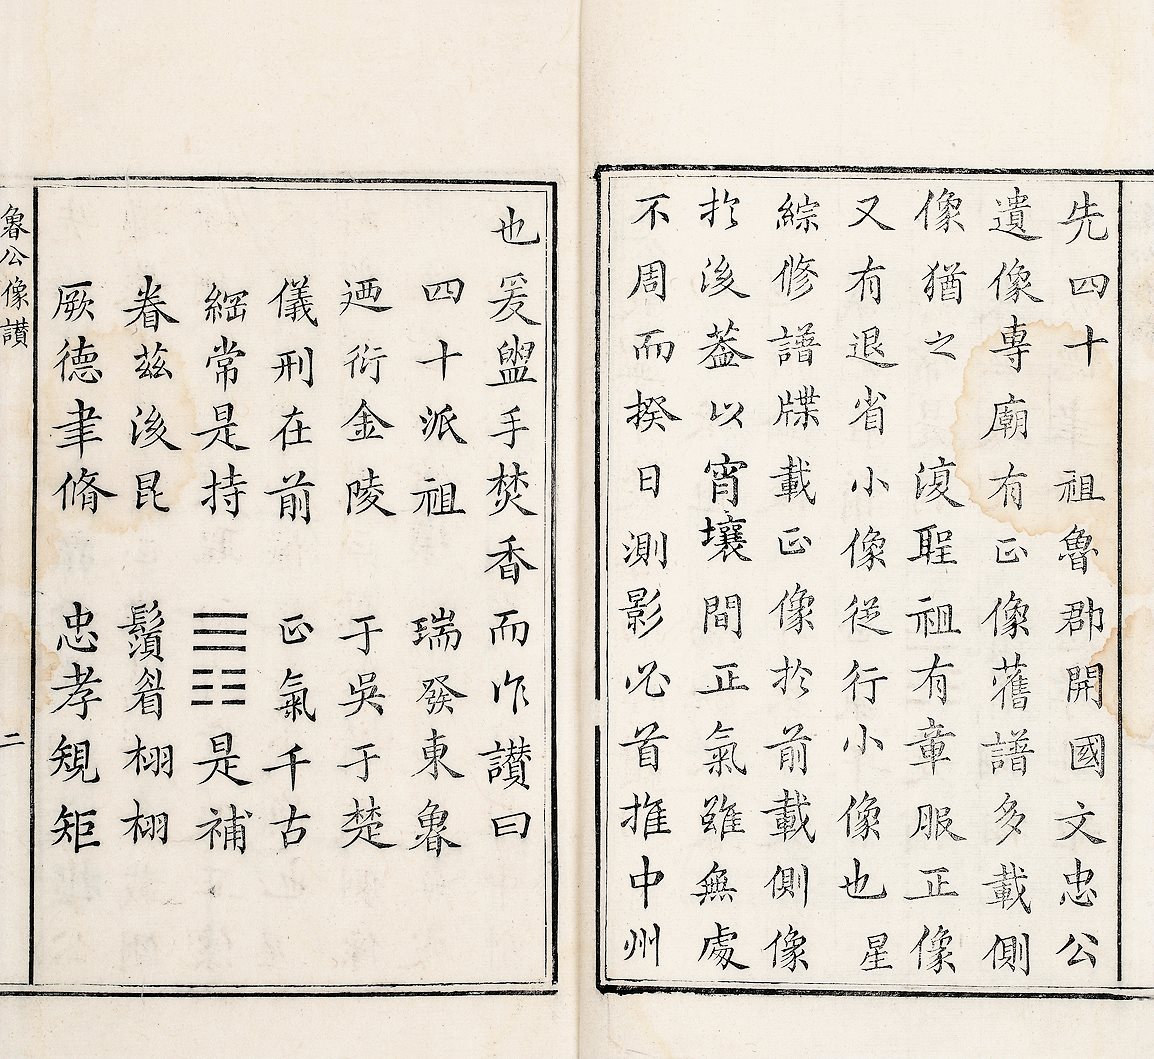 先四十 祖魯郡開國文忠公
遺像專廟有正像舊譜多載側
像猶之 復聖祖有章服正像
又有退省小像從行小像也星
綜修譜牒載正像於前載側像
於後葢以宵壤間正氣雖無處
不周而揆日測影必首推中州
也爰盥手焚香而作讃曰
四十派祖 瑞發東魯
迺衍金陵 于吳于楚
儀刑在前 正氣千古
綱常是持 ☰☷是補
眷茲後昆 鬚眉栩栩
厥德聿脩 忠孝䂓矩
魯公像讃 二